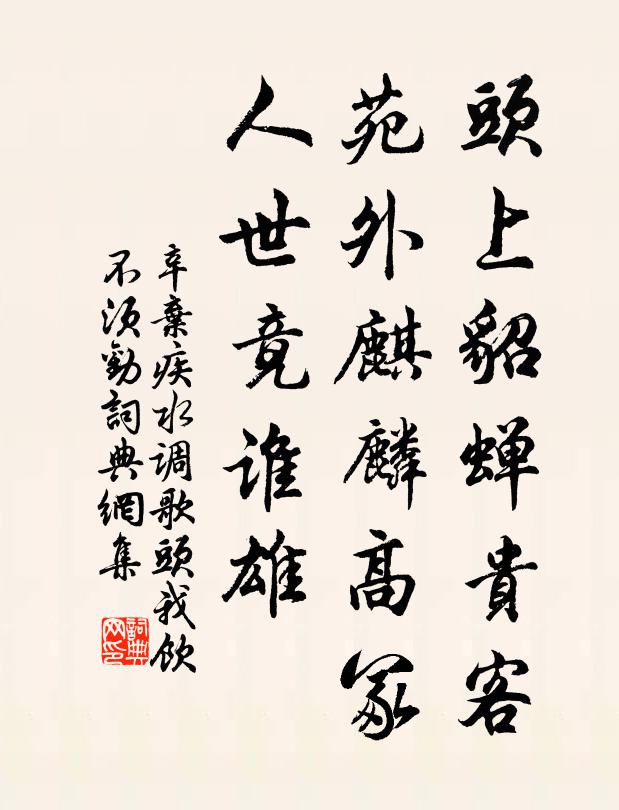 頭上貂蟬貴客
苑外麒麟高冢
人世竟誰雄
辛棄疾水调歌頭我飲
不須勸詞典網集
詞典網印